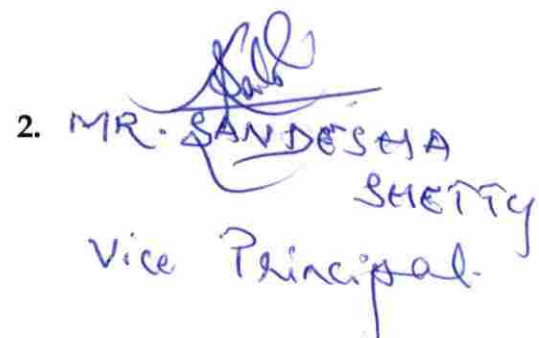 2. MR. SANDESHA
SHETTY
Vice Principal.